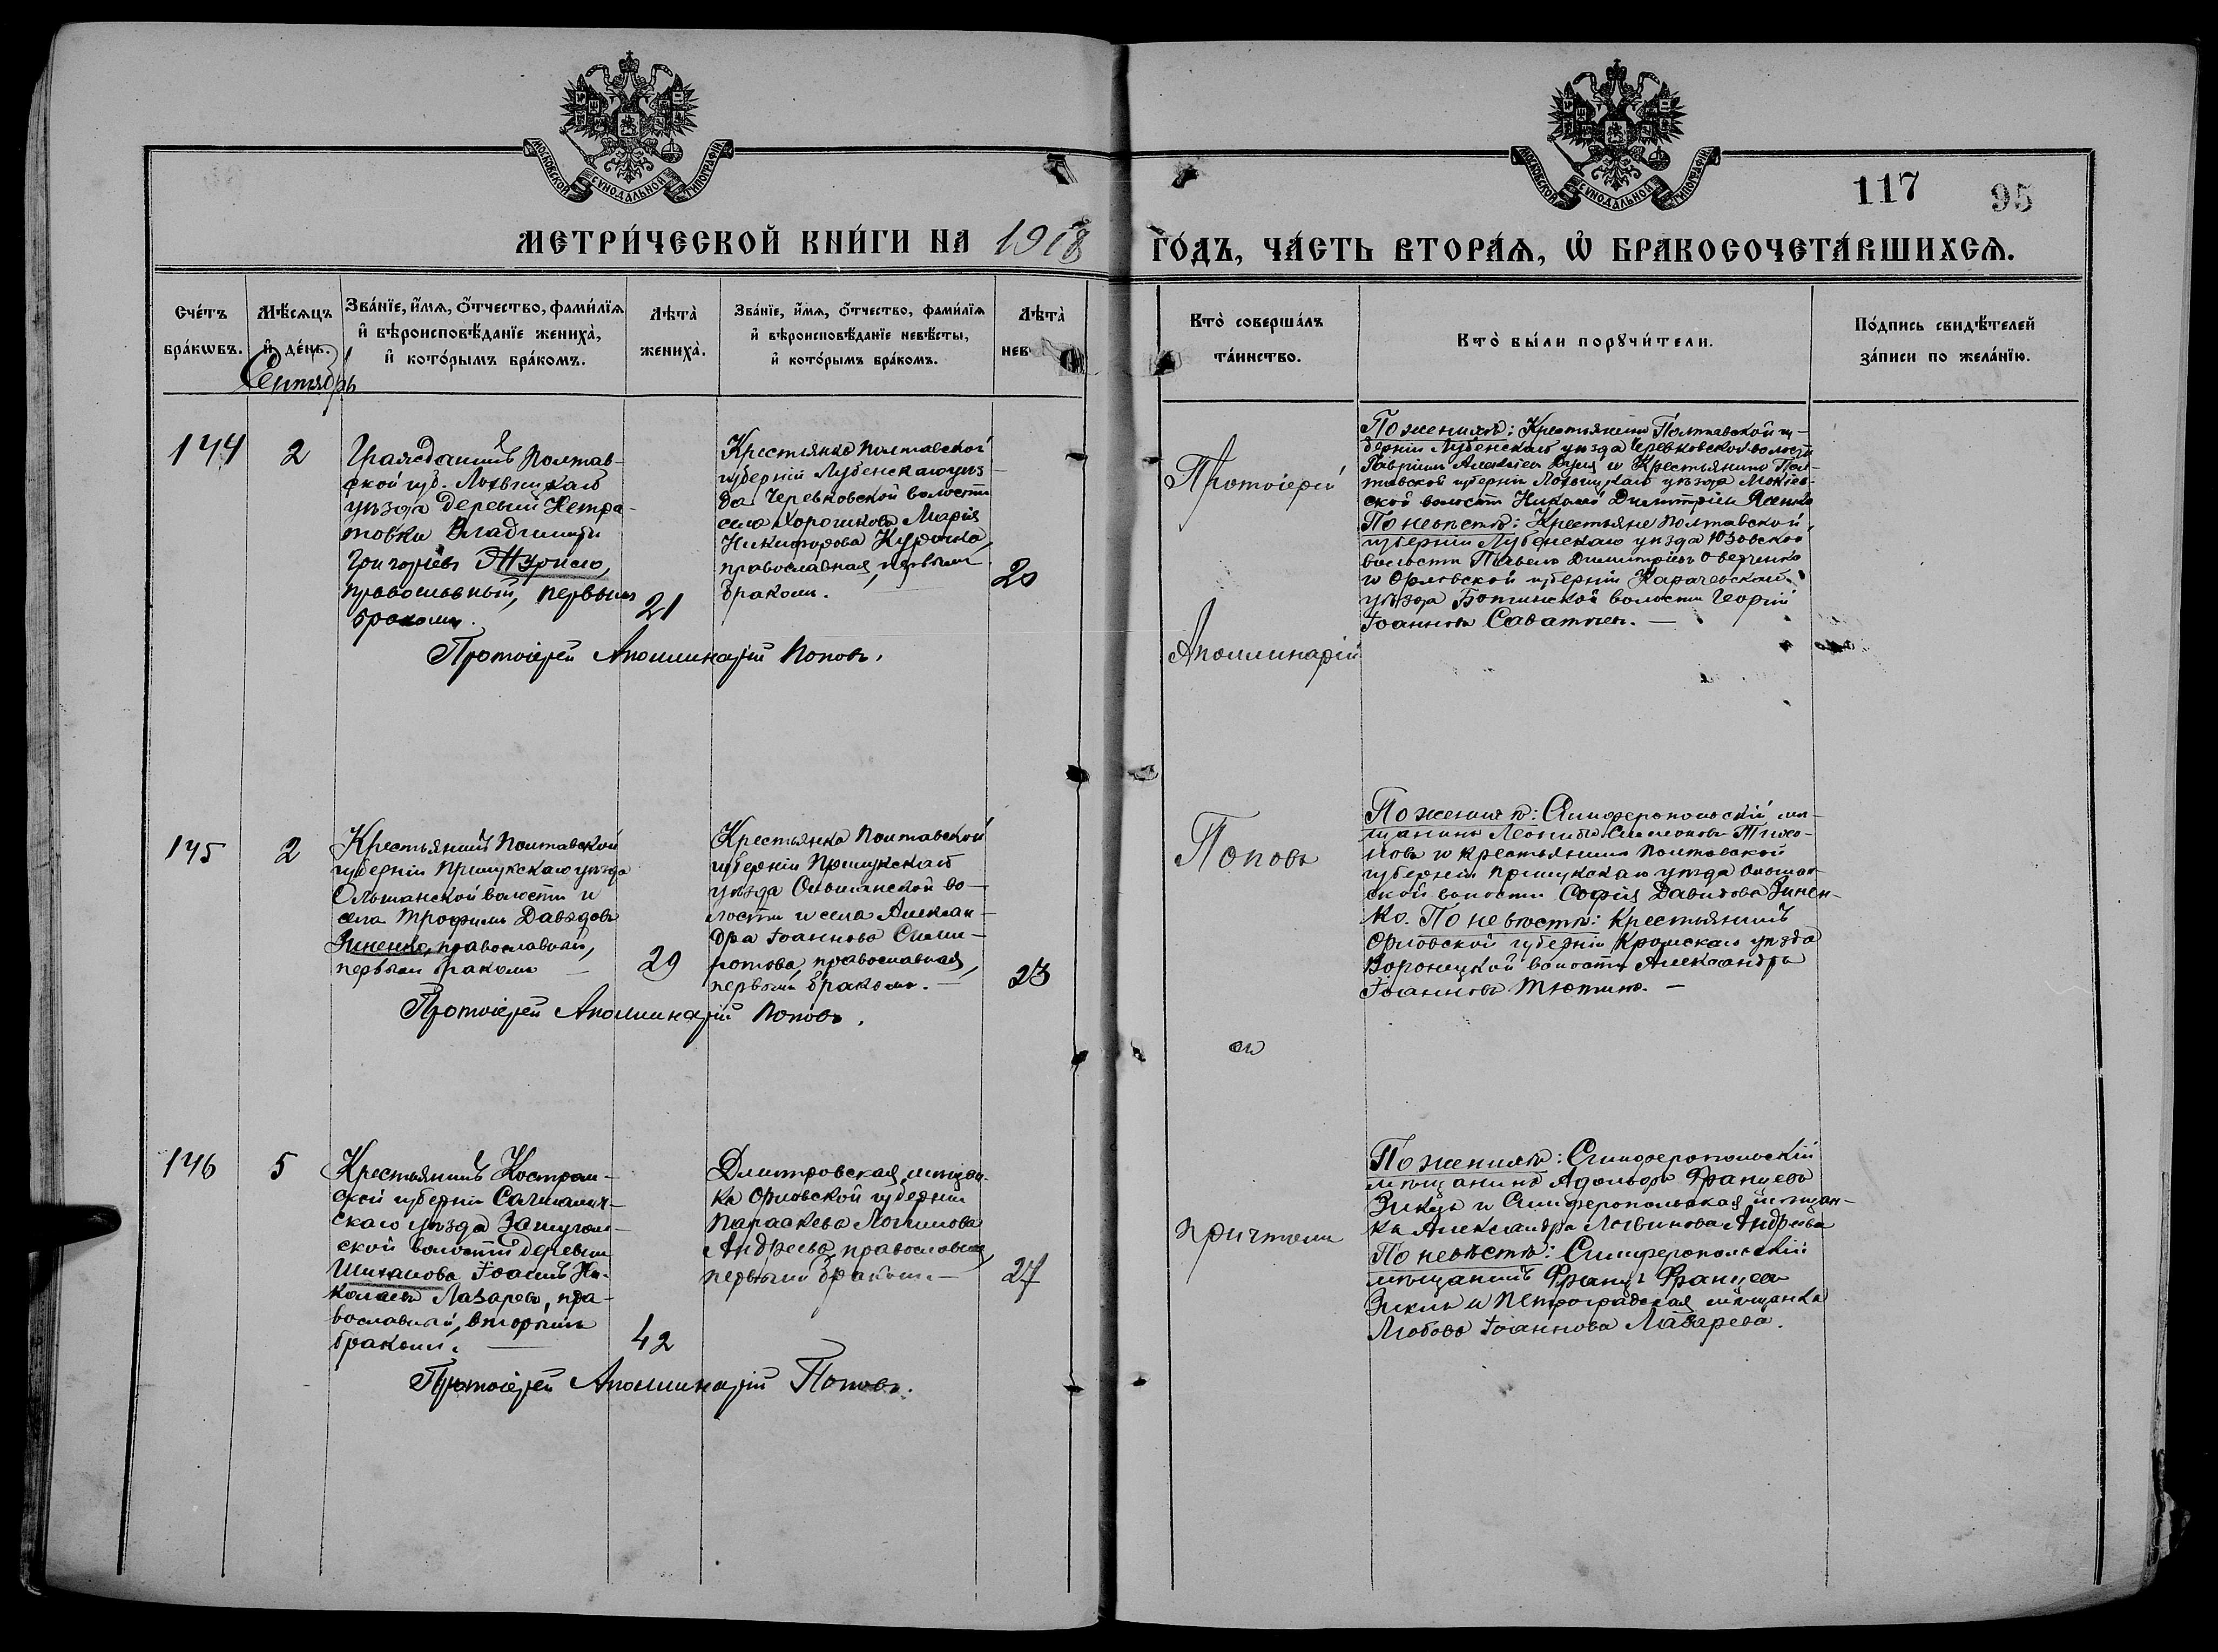 МОСКОВСКОЙ СУНОДАЛЬНОЙ ТИПОГРАФІИ
МОСКОВСКОЙ СУНОДАЛЬНОЙ ТИПОГРАФІИ
117 95
МЕТРИ́ЧЕСКОЙ КНИ́ГИ НА 1918 ГО́ДЪ, ЧА́СТЬ ВТОРА́Ѧ, Ѽ БРАКОСОЧЕТА́ВШИХСѦ.
Сче́тъ бра́кѡвъ.
Мѣ́сѧцъ и҆ де́нь.
Зва́нїе, и҆́мѧ, ѻ҆́тчество, фами́лїѧ и҆ вѣроисповѣ́данїе жениха̀, и҆ кото́рымъ бра́комъ.
Лѣта̀ жениха̀.
Зва́нїе, и҆́мѧ, ѻ҆́тчество, фами́лїѧ и҆ вѣроисповѣ́данїе невѣ́сты, и҆ кото́рымъ бра́комъ.
Лѣта̀ нев
Кто̀ соверша́лъ та́инство.
Кто̀ бы́ли порꙋчи́тели.
По́дпись свидѣ́телей за́писи по жела́нїю.
Сентябрь
144
2
Гражданинъ Полтав-
ской губ. Лохвицкаго
уѣзда деревни
Владиміръ
Григоріевъ
православный, первымъ
бракомъ.
21
Крестьянка Полтавской
губерніи Лубенскаго уѣз-
да Черевковской волости
села Хорошковъ Марія
Никифорова Курочка,
православная, первымъ
бракомъ.
20
Протоіерей Аполлинарій Поповъ.
Протоіерей
Аполлинарій
По женихѣ: Крестьянинъ Полтавской гу-
берніи Лубенскаго уѣзда Черевковской волости
Гавріилъ Алексіевъ и Крестьянинъ Пол-
тавской губерніи Лохвицкаго уѣзда
ской волости Николай Димитріевъ
По невѣстѣ: Крестьяне Полтавской
губерніи Лубенскаго уѣзда Юзовской
волости Павелъ Димитріевъ
и Орловской губерніи Карачевскаго
уѣзда волости Георгій
Іоанновъ
145
2
Крестьянинъ Полтавской
губерніи Прилукскаго уѣзда
Ольшанской волости и
села Трофимъ Давидовъ
Зиненко, православный,
первымъ бракомъ
29
Крестьянка Полтавской
губерніи Прилукскаго
уѣзда Ольшанской во-
лости и села Алексан-
дра Іоаннова
православная,
первымъ бракомъ.
23
Протоіерей Аполлинарій Поповъ.
Поповъ
съ
По женихѣ: Симферопольскій мѣ-
щанинъ Леонидъ Симеоновъ Тихо-
новъ и крестьянинъ Полтавской
губерніи Прилукскаго уѣзда Ольшан-
ской волости Софія Давидова Зинен-
ко. По невѣстѣ: Крестьянинъ
Орловской губерніи Кромскаго уѣзда
волости Александръ
Іоанновъ Тютинъ.
146
5
Крестьянинъ Костром-
ской губерніи Солигалич-
скаго уѣзда
ской волости деревни
Шиханова Іоаннъ Ни-
колаевъ Лазаревъ, пра-
вославный, вторымъ
бракомъ.
42
Дмитровская мѣщан-
ка Орловской губерніи
Параскева Логвинова
Андреева, православная,
первымъ бракомъ.
27
Протоіерей Аполлинарій Поповъ.
причтомъ
По женихѣ: Симферопольскій
мѣщанинъ Адольфъ Францевъ
и Симферопольская мѣщан-
ка Александра Логвинова Андреева
По невѣстѣ: Симферопольскій
мѣщанинъ Францъ Францевъ
и Петроградская мѣщанка
Любовь Іоаннова Лазарева.